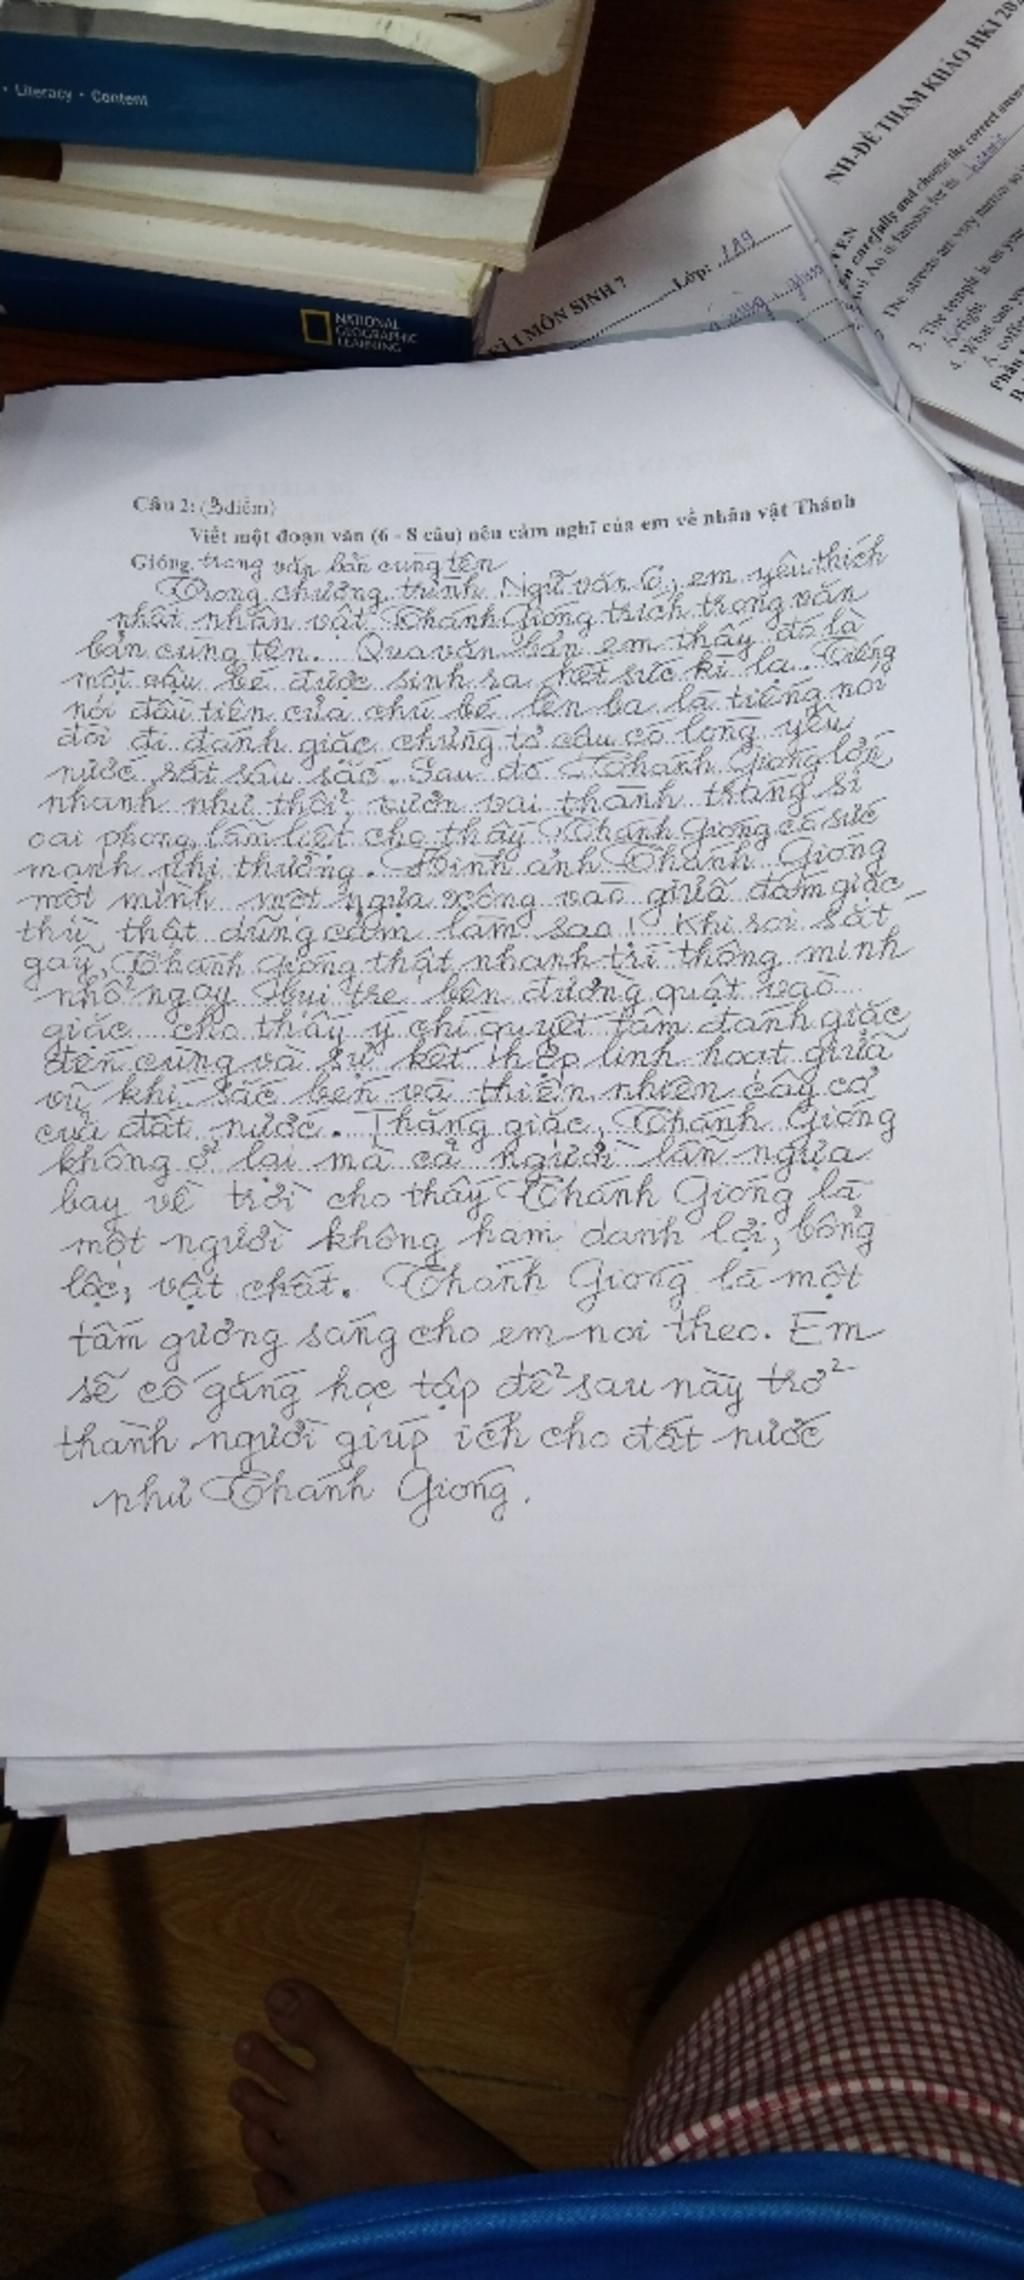 · Literacy · Content
NATIONAL
GEOGRAPHIC
LEARNING
KÌ I MÔN SINH 7
Lớp:
NH-ĐỀ THAM KHẢO HKI 20
carefully and choose the correct answ
Hoi An is famous for its
The streets are very narrow so
3. The temple is on your
A. right
4. What can you
Phần
B.
Câu 2: (3điểm)
Viết một đoạn văn (6 - 8 câu) nêu cảm nghĩ của em về nhân vật Thánh
Gióng trong văn bản cùng tên
Trong chương trình Ngữ văn 6, em yêu thích
nhất nhân vật Thánh Gióng trích trong văn
bản cùng tên. Qua văn bản em thấy đó là
một cậu bé được sinh ra hết sức kì lạ. Tiếng
nói đầu tiên của chú bé lên ba là tiếng nói
đòi đi đánh giặc chứng tỏ cậu có lòng yêu
nước rất sâu sắc. Sau đó Thánh Gióng lớn
nhanh như thổi, vươn vai thành tráng sĩ
oai phong, lẫm liệt cho thấy Thánh Gióng có sức
mạnh phi thường. Hình ảnh Thánh Gióng
một mình một ngựa xông vào giữa đám giặc
thù thật dũng cảm làm sao! Khi roi sắt
gãy, Thánh Gióng thật nhanh trí thông minh
nhổ ngay bụi tre bên đường quật vào
giặc cho thấy ý chí quyết tâm đánh giặc
đến cùng và sự kết hợp linh hoạt giữa
vũ khí sắc bén và thiên nhiên cây cỏ
của đất nước. Thắng giặc, Thánh Gióng
không ở lại mà cả người lẫn ngựa
bay về trời cho thấy Thánh Gióng là
một người không ham danh lợi, bổng
lộc, vật chất. Thánh Gióng là một
tấm gương sáng cho em noi theo. Em
sẽ cố gắng học tập để sau này trở
thành người giúp ích cho đất nước
như Thánh Gióng.